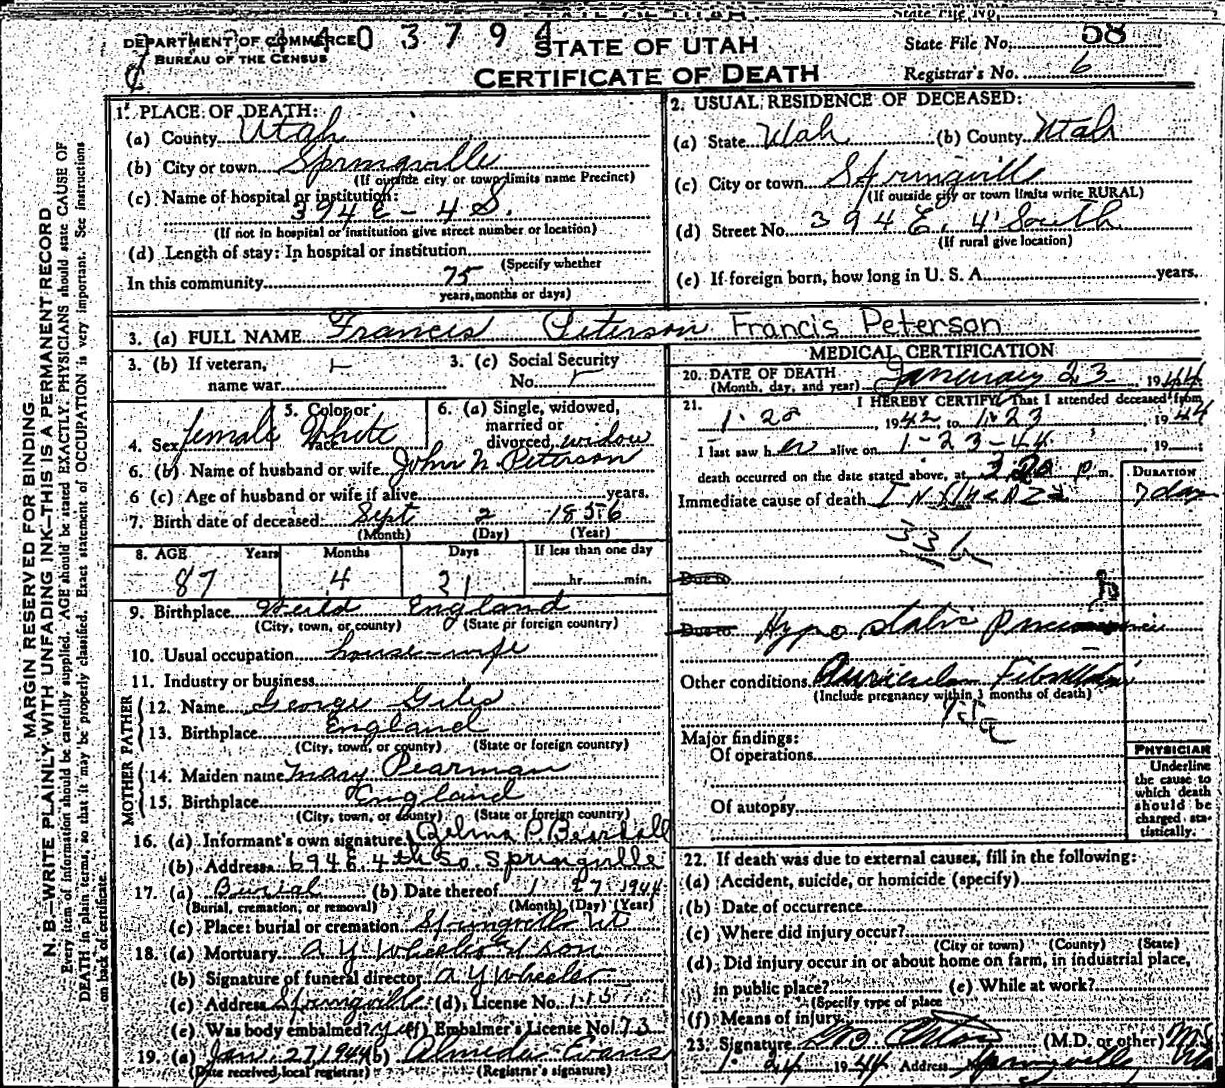 DEPARTMENT OF COMMERCE
BUREAU OF THE CENSUS
4 0 3 7 9 4
STATE OF UTAH
CERTIFICATE OF DEATH
State File No. 58
Registrar's No. 6
MARGIN RESERVED FOR BINDING
N. B.—WRITE PLAINLY WITH UNFADING INK—THIS IS A PERMANENT RECORD
Every item of information should be carefully supplied. AGE should be stated EXACTLY. PHYSICIANS should state CAUSE OF
DEATH in plain terms, so that it may be properly classified. Exact statement of OCCUPATION is very important. See instructions
on back of certificate.
1. PLACE OF DEATH:
(a) County Utah
(b) City or town Springville
(If outside city or town limits name Precinct)
(c) Name of hospital or institution:
394 E - 4 S.
(If not in hospital or institution give street number or location)
(d) Length of stay: In hospital or institution
(Specify whether
In this community 75
years, months or days)
2. USUAL RESIDENCE OF DECEASED:
(a) State Utah (b) County Utah
(c) City or town Springville
(If outside city or town limits write RURAL)
(d) Street No. 394 E. 4 South
(If rural give location)
(e) If foreign born, how long in U. S. A. years.
3. (a) FULL NAME Francis Peterson Francis Peterson
3. (b) If veteran,
name war
3. (c) Social Security
No.
4. Sex female
5. Color or
race White
6. (a) Single, widowed,
married or
divorced, widow
6. (b) Name of husband or wife John N. Peterson
6 (c) Age of husband or wife if alive years.
7. Birth date of deceased: Sept 2 1856
(Month) (Day) (Year)
8. AGE Years Months Days If less than one day
87 4 21 hr. min.
9. Birthplace England
(City, town, or county) (State or foreign country)
10. Usual occupation house-wife
11. Industry or business
FATHER
12. Name George Giles
13. Birthplace England
(City, town, or county) (State or foreign country)
MOTHER
14. Maiden name Mary Pearman
15. Birthplace England
(City, town, or county) (State or foreign country)
16. (a) Informant's own signature Zelma P. Beardall
(b) Address 694 E 4th So. Springville
17. (a) Burial (b) Date thereof 1 27 1944
(Burial, cremation, or removal) (Month) (Day) (Year)
(c) Place: burial or cremation Springville Ut
18. (a) Mortuary A Y Wheeler & Son
(b) Signature of funeral director A Y Wheeler
(c) Address Springville (d) License No. 115
(e) Was body embalmed? yes (f) Embalmer's License No. 173
19. (a) Jan. 27, 1944 (b) Almeda Evans
(Date received, local registrar) (Registrar's signature)
MEDICAL CERTIFICATION
20. DATE OF DEATH
(Month, day, and year) January 23, 1944
21. I HEREBY CERTIFY, That I attended deceased from
1-28 1942 to 1-23 1944
I last saw her alive on 1-23-44 19
death occurred on the date stated above, at p. m.
DURATION
Immediate cause of death Influenza 7 days
Due to
Due to Hypostatic Pneumonia
Other conditions Auricular Fibrillation
(Include pregnancy within 3 months of death)
Major findings:
Of operations
Of autopsy
PHYSICIAN
Underline
the cause to
which death
should be
charged sta-
tistically.
22. If death was due to external causes, fill in the following:
(a) Accident, suicide, or homicide (specify)
(b) Date of occurrence
(c) Where did injury occur?
(City or town) (County) (State)
(d) Did injury occur in or about home on farm, in industrial place,
in public place? (e) While at work?
(Specify type of place
(f) Means of injury
23. Signature (M.D. or other)
1-24 1944 Address Springville